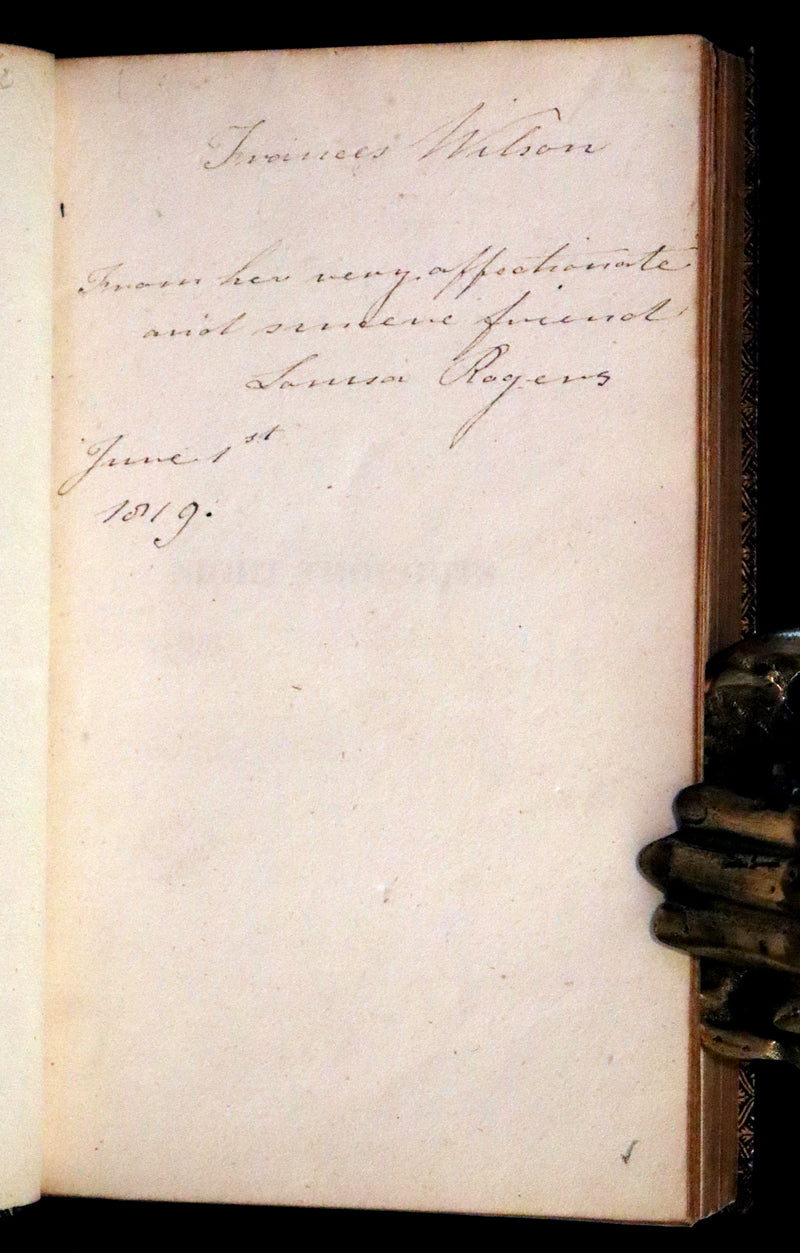 Frances Wilson
From her very affectionate
and sincere friend
Louisa Rogers
June 1st
1819.
NIGHT THOUGHTS